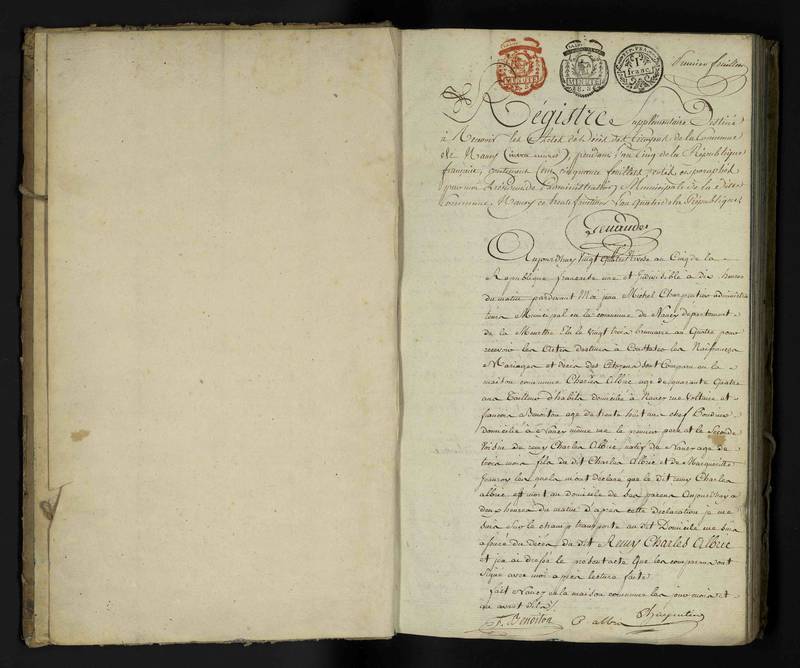 MINUTE
MINUTE
1
franc
Premier feuillet
Régistre supplémentaire Destiné
à Recevoir les Actes de décès des Citoyens de la Commune
de Nancy (intra muros), pendant l'an Cinq de la République
française, contenant cinquante feuillets cotés et paraphés
par moi Président de l'administration Municipale de la dite
Commune. Nancy ce trente fructidor l'an quatre de la République
Aujourdhuy vingt quatre au Cinq de la
Republique française une et Indivisible a dix heures
du matin pardevant Moi jean Michel Charpentier administra
teur Municipal en la commune de Nancy departement
de la Meurthe Elu le vingt trois brumaire an Quatre pour
recevoir les Actes destinés à Constater les Naissances
Mariages et décès des Citoyens sont Comparu en la
maison commune Charles Albrie age de quarante Quatre
ans Tailleur d'habits domicilié à Nancy rue Voltaire et
francois Benoiton age de trente huit ans chef
Domicilié à Nancy même rue le premier pere et le Second
voisin de remy Charles Albrie natif de Nancy age de
trois mois fils de dit Charles Albrie et de Margueritte
les quels m'ont déclaré que le dit remy Charles
albrie est mort au domicile de ses parens Aujourdhuy a
deux heures du matin d'apres cette declaration je me
suis Sur le champ transporté au dit Domicile me suis
assuré du décès du dit Remy Charles Albrie
et j'en ai dressé le present acte que les comparans ont
signé avec moi apres lecture faite
fait Nancy en la maison commune les jour mois et
an avant dits
f. Benoiton C albrie Charpentier